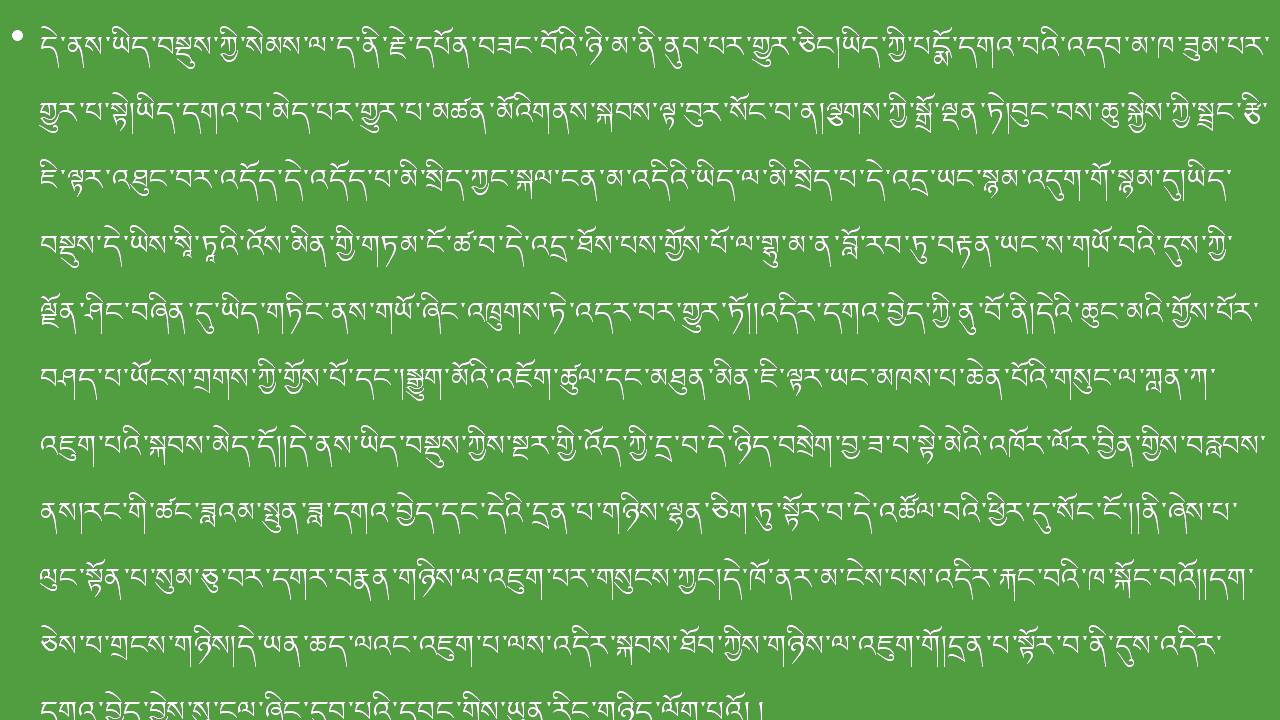 • དེ་ནས་ཡིད་བསྡུས་ཀྱི་སེམས་ལ་ད་ནི་རྗེ་དཔོན་བཟང་བོའི་ཉི་མ་ནི་ནུབ་པར་གྱུར་ཅིང།ཡིད་ཀྱི་པདྨོ་དགའ་བའི་འདབ་མ་ཁ་ཟུམ་པར་
གྱུར་པ་སྟེ།ཡིད་དགའ་བ་མེད་པར་གྱུར་པ་མཚན་མོའིགནས་སྐབས་ལྟ་བུར་སོང་བ་ན།ལྕགས་ཀྱི་སྒྲོ་ལྡན་ཏེ།བུང་བས་ཆུ་སྐྱེས་ཀྱི་སྦྲང་རྩི་
ཇི་ལྟར་འཐུང་བར་འདོད་དེ་འདོད་པ་མི་སྲིད་ཀྱང་སྐལ་ངན་མ་འདིའི་ཡིད་ལ་མི་སྲིད་པ་དེ་འདྲ་ཡང་སྙམ་འདུག་གོ་སྙམ་དུ།ཡིད་
བསྡུས་དེ་ཡིས་སཱི་ཏཱའི་འོས་མིན་གྱི་གཏམ་ངོ་ཚ་བ་དེ་འདྲ་ཐོས་པས་གྱོས་པོ་ལ་གྷུ་མ་ན་བློ་རབ་ཏུ་བརྟན་ཡང་ས་གཡོ་བའི་དུས་ཀྱི་
ལྗོན་ཤིང་བཞིན་དུ་ཡིད་གཏིང་ནས་གཡོ་ཞིང་འཁྲུགས་ཏེ་འདར་བར་གྱུར་ཏོ།།འདིར་དགའ་བྱེད་ཀྱི་ནུ་བོ་ནི།དེའི་ཆུང་མའི་གྱོས་པོར་
བཤད་པ་ཡོངས་གྲགས་ཀྱི་གྱོས་པོ་དང་།སྒྱུག་མོའི་འཇོག་ཚུལ་དང་མཐུན་མིན་ཇི་ལྟར་ཡང་མཁས་པ་ཆེན་པོའི་གསུང་ལ་ཀླན་ཀ་
འཇུག་པའི་སྐབས་མེད་དོ།།དེ་ནས་ཡིད་བསྡུས་ཀྱིས་སྔར་གྱི་འོད་ཀྱི་དྲ་བ་དེ་ཉིད་བསྲེག་བྱ་ཟ་བ་སྟེ་མེའི་འཁོར་ལོར་བྱིན་གྱིས་བརླབས་
ནས།རང་གི་ཚང་ཟླའམ་སྤུན་ཟླ་དགའ་བྱེད་དང་དེའི་དྲན་པ་གཉིས་ལྷན་ཅིག་ཏུ་སྟོར་བ་དེ་འཚོལ་བའི་ཕྱིར་དུ་སོང་ངོ་།།ནི་ཞེས་པ་
ལུང་སྟོན་པ་སུམ་ཅུ་བར་དགར་བརྣན་གཉིས་ལ་འཇུག་པར་གསུངས་ཀྱང།དེ་ཁོ་ནར་མ་ངེས་པས་འདིར་རྐང་བའི་ཁ་སྐོང་བའོ།།དག་
ཅེས་པ་གྲངས་གཉིས།དེ་ཡན་ཆད་ལའང་འཇུག་པ་ལས་འདིར་སྐབས་ཐོབ་ཀྱིས་གཉིས་ལ་འཇུག་གོ།དྲན་པ་སྟོར་བ་ནི་དུས་འདིར་
དགའ་བྱེད་བྱེས་སུ་ངལ་ཞིང་དུབ་པའི་དབང་གིས་ཡུན་རིང་གཉིད་ལོག་པའོ། །